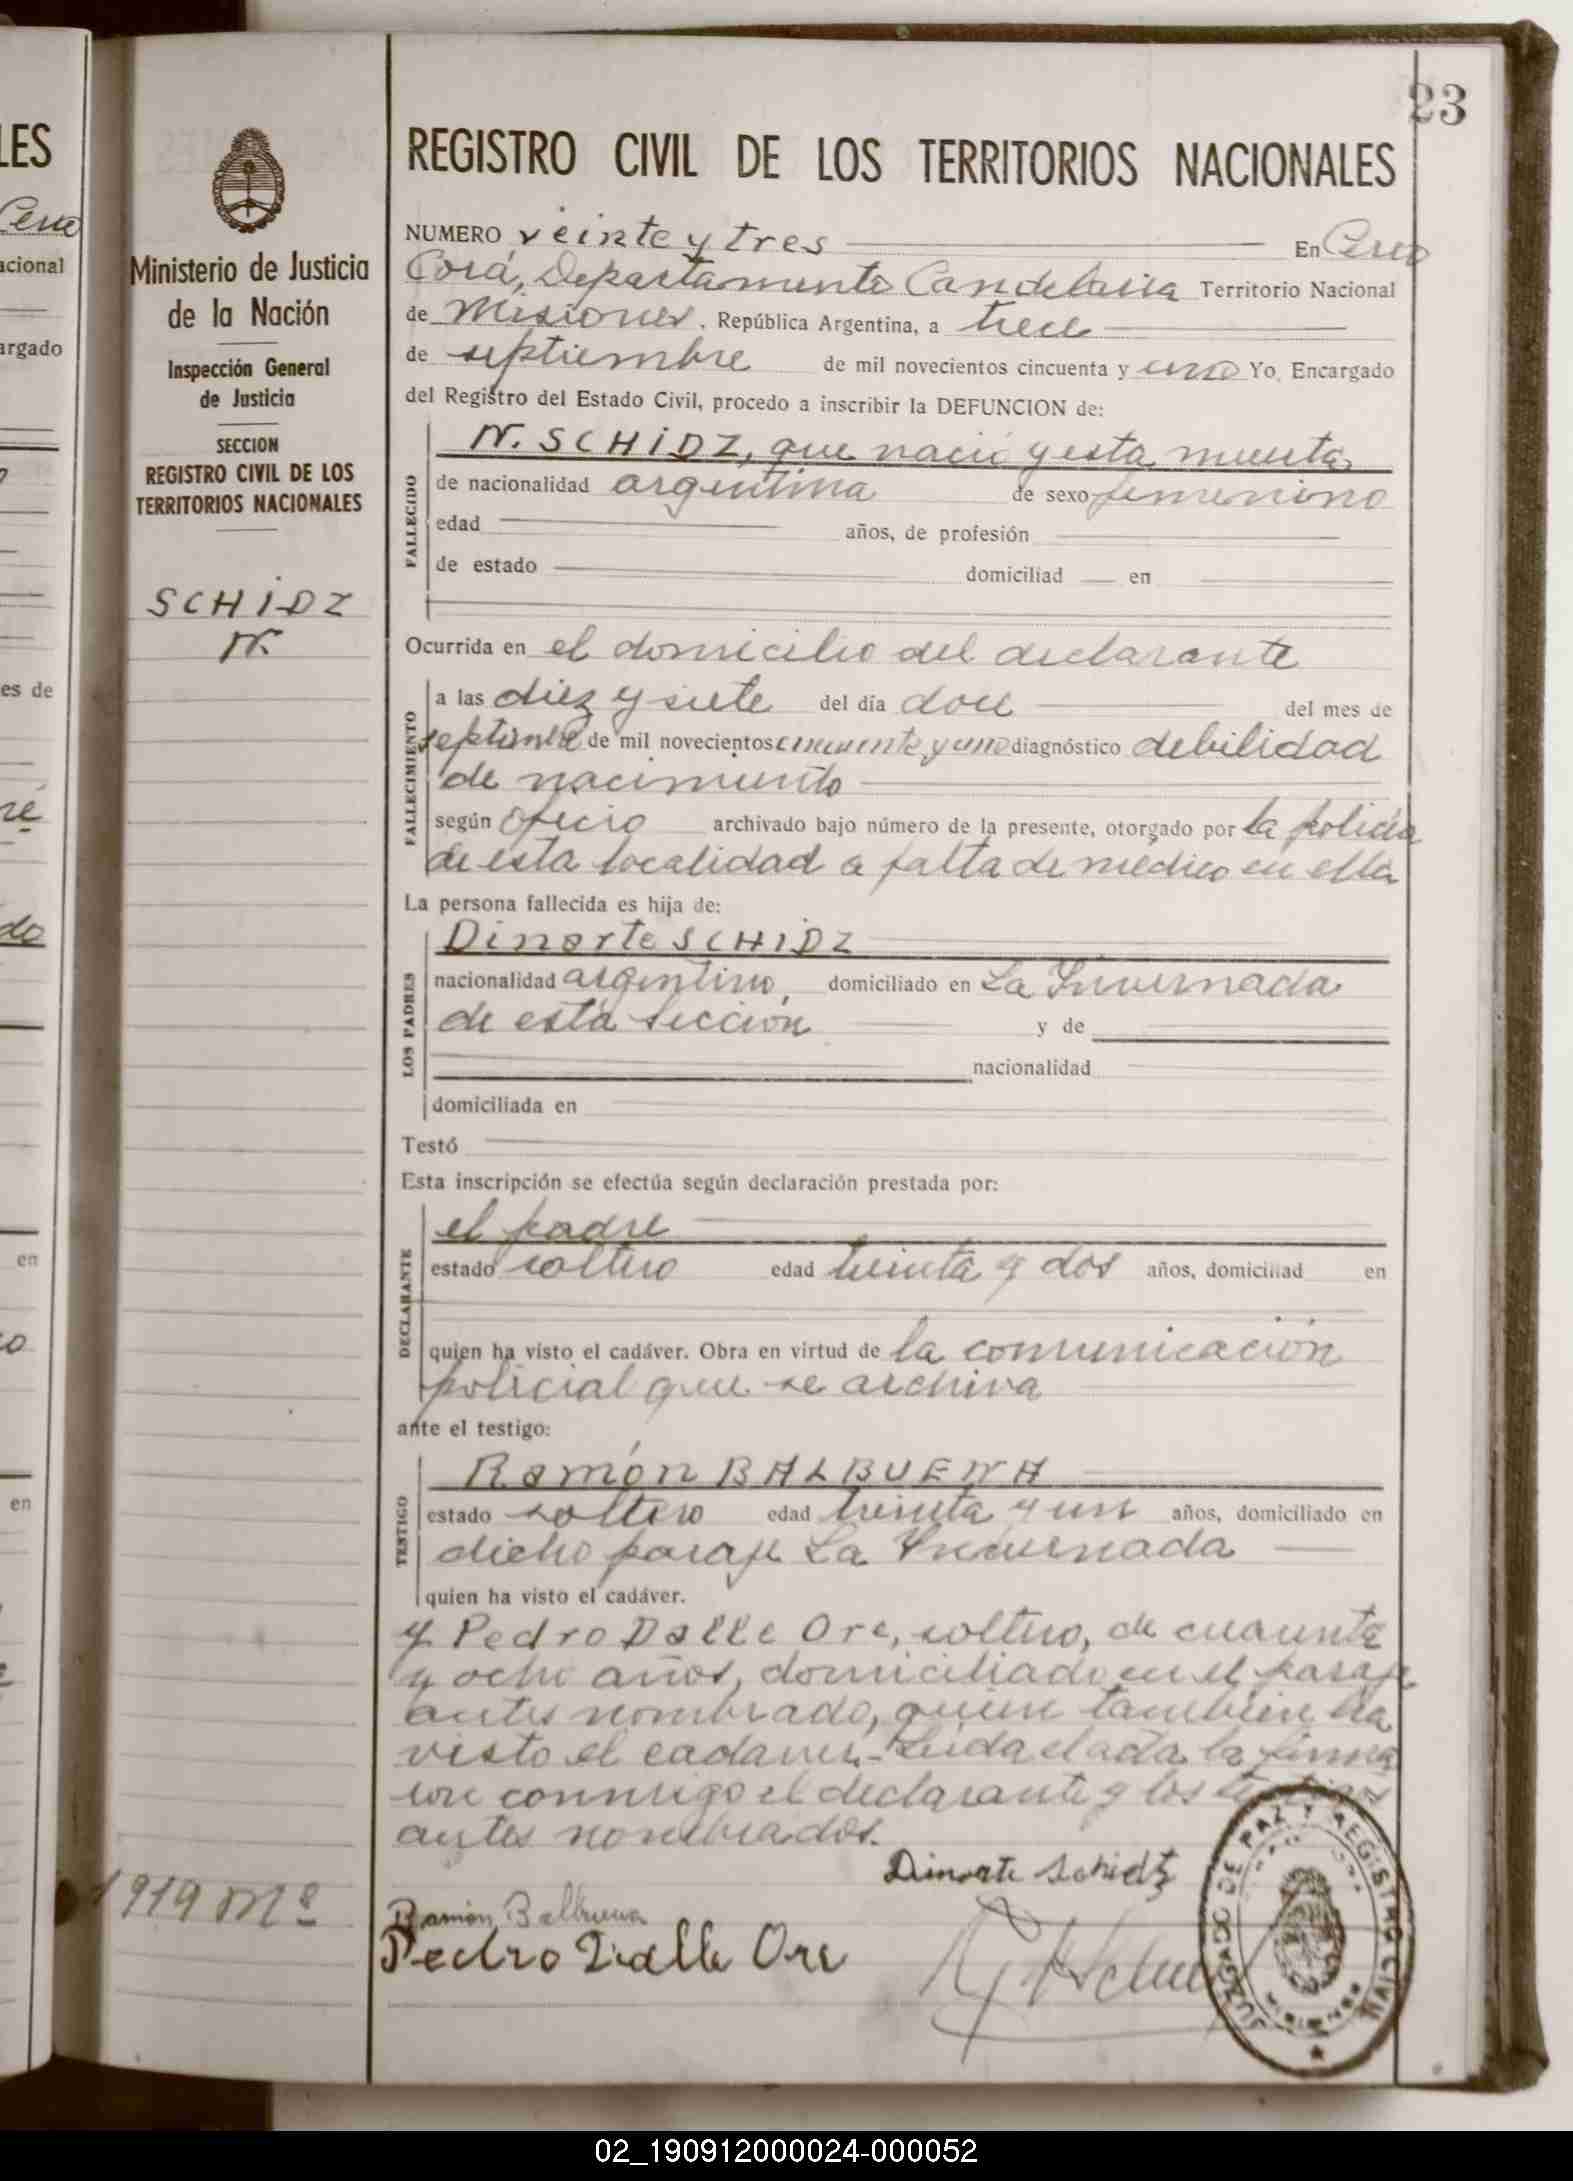 23
REGISTRO CIVIL DE LOS TERRITORIOS NACIONALES
Ministerio de Justicia
de la Nación
Inspección General
de Justicia
SECCION
REGISTRO CIVIL DE LOS
TERRITORIOS NACIONALES
SCHIDZ
N.
NUMERO veinte y tres En Cerro
Corá, Departamento Candelaria Territorio Nacional
de Misiones, República Argentina, a trece
de septiembre de mil novecientos cincuenta y uno Yo, Encargado
del Registro del Estado Civil, procedo a inscribir la DEFUNCION de:
FALLECIDO
N. SCHIDZ, que nació y esta muerta
de nacionalidad argentina de sexo femenino
edad años, de profesión
de estado domiciliad en
Ocurrida en el domicilio del declarante
FALLECIMIENTO
a las diez y siete del día doce del mes de
septiembre de mil novecientos cincuenta y uno diagnóstico debilidad
de nacimiento
según oficio archivado bajo número de la presente, otorgado por la policía
de esta localidad a falta de médico en ella
La persona fallecida es hija de:
LOS PADRES
Dinarte SCHIDZ
nacionalidad argentino, domiciliado en La Invernada
de esta sección y de
nacionalidad
domiciliada en
Testó
Esta inscripción se efectúa según declaración prestada por:
DECLARANTE
el padre
estado soltero edad treinta y dos años, domiciliad en
quien ha visto el cadáver. Obra en virtud de la comunicación
policial que se archiva
ante el testigo:
TESTIGO
Ramón BALBUENA
estado soltero edad treinta y un años, domiciliado en
dicho paraje La Invernada
quien ha visto el cadáver.
y Pedro Dalle Ore, soltero, de cuarenta
y ocho años, domiciliado en el paraje
antes nombrado, quien tambien ha
visto el cadaver.- Leida el acta la firma
con conmigo el declarante y los testigos
antes nombrados.
Dinarte Schidz
Ramón Balbuena
Pedro Dalle Ore
1919 Mº
JUZGADO DE PAZ Y REGISTRO CIVIL
MISIONES
LES
Cerro
acional
argado
es de
ré
do
en
en
02_190912000024-000052